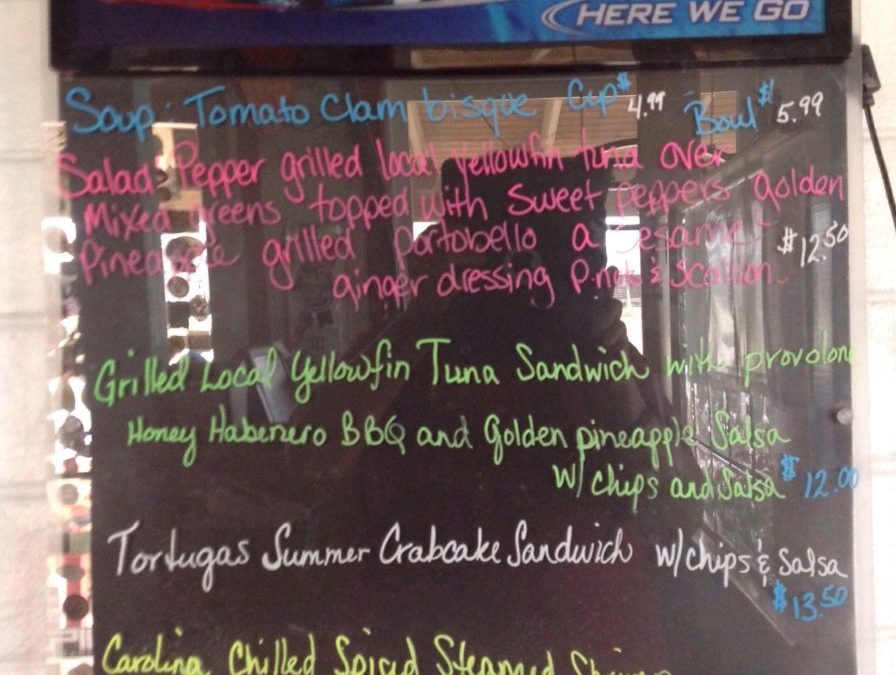 HERE WE GO
Soup: Tomato Clam bisque Cup $4.99 Bowl $5.99
Salad Pepper grilled local yellowfin tuna over
Mixed greens topped with sweet peppers golden
Pineapple grilled portobello a Sesame $12.50
ginger dressing P.nuts & Scallion
Grilled Local Yellowfin Tuna Sandwich with provolone
Honey Habenero BBQ and Golden pineapple Salsa
w/ chips and Salsa $12.00
Tortugas Summer Crabcake Sandwich w/chips & Salsa
$13.50
Carolina Chilled Spiced Steamed Shrimp